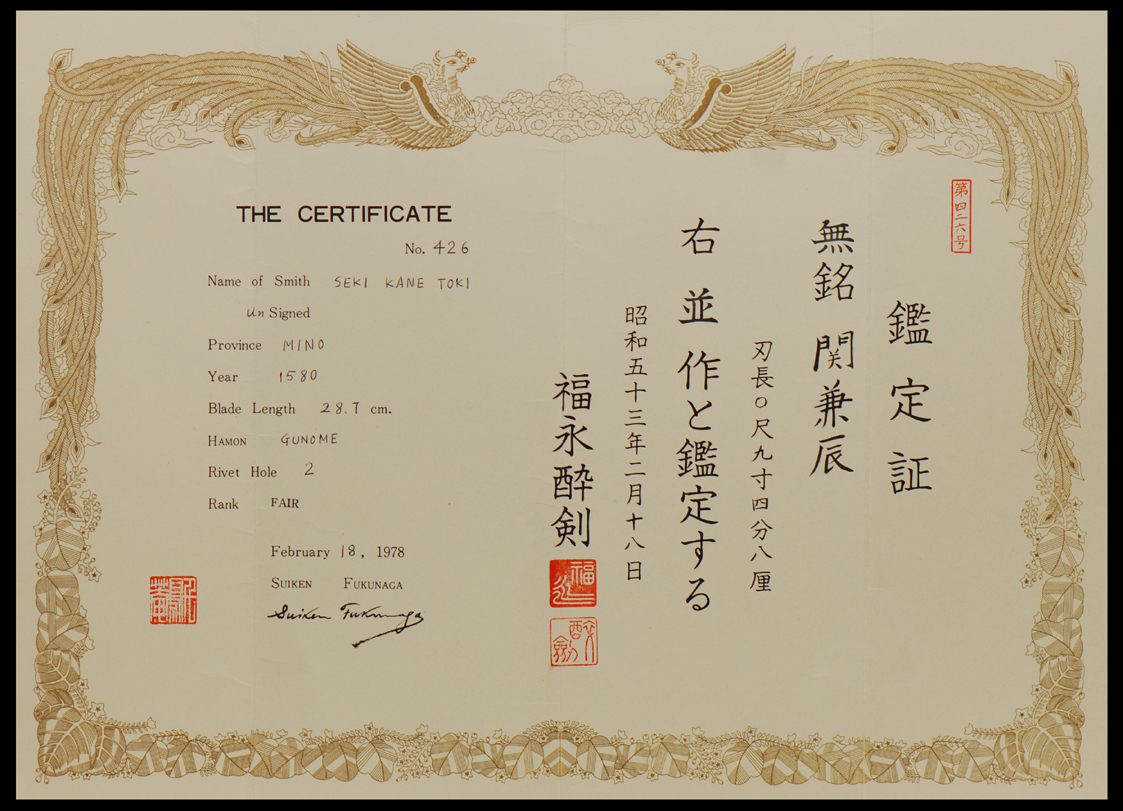 第四二六号
鑑定証
無銘 関兼辰
刃長〇尺九寸四分八厘
右 並作と鑑定する
昭和五十三年二月十八日
福永酔剣
THE CERTIFICATE
No. 426
Name of Smith SEKI KANE TOKI
Un Signed
Province MINO
Year 1580
Blade Length 28.7 cm.
HAMON GUNOME
Rivet Hole 2
Rank FAIR
February 18, 1978
SUIKEN FUKUNAGA
Suiken Fukunaga